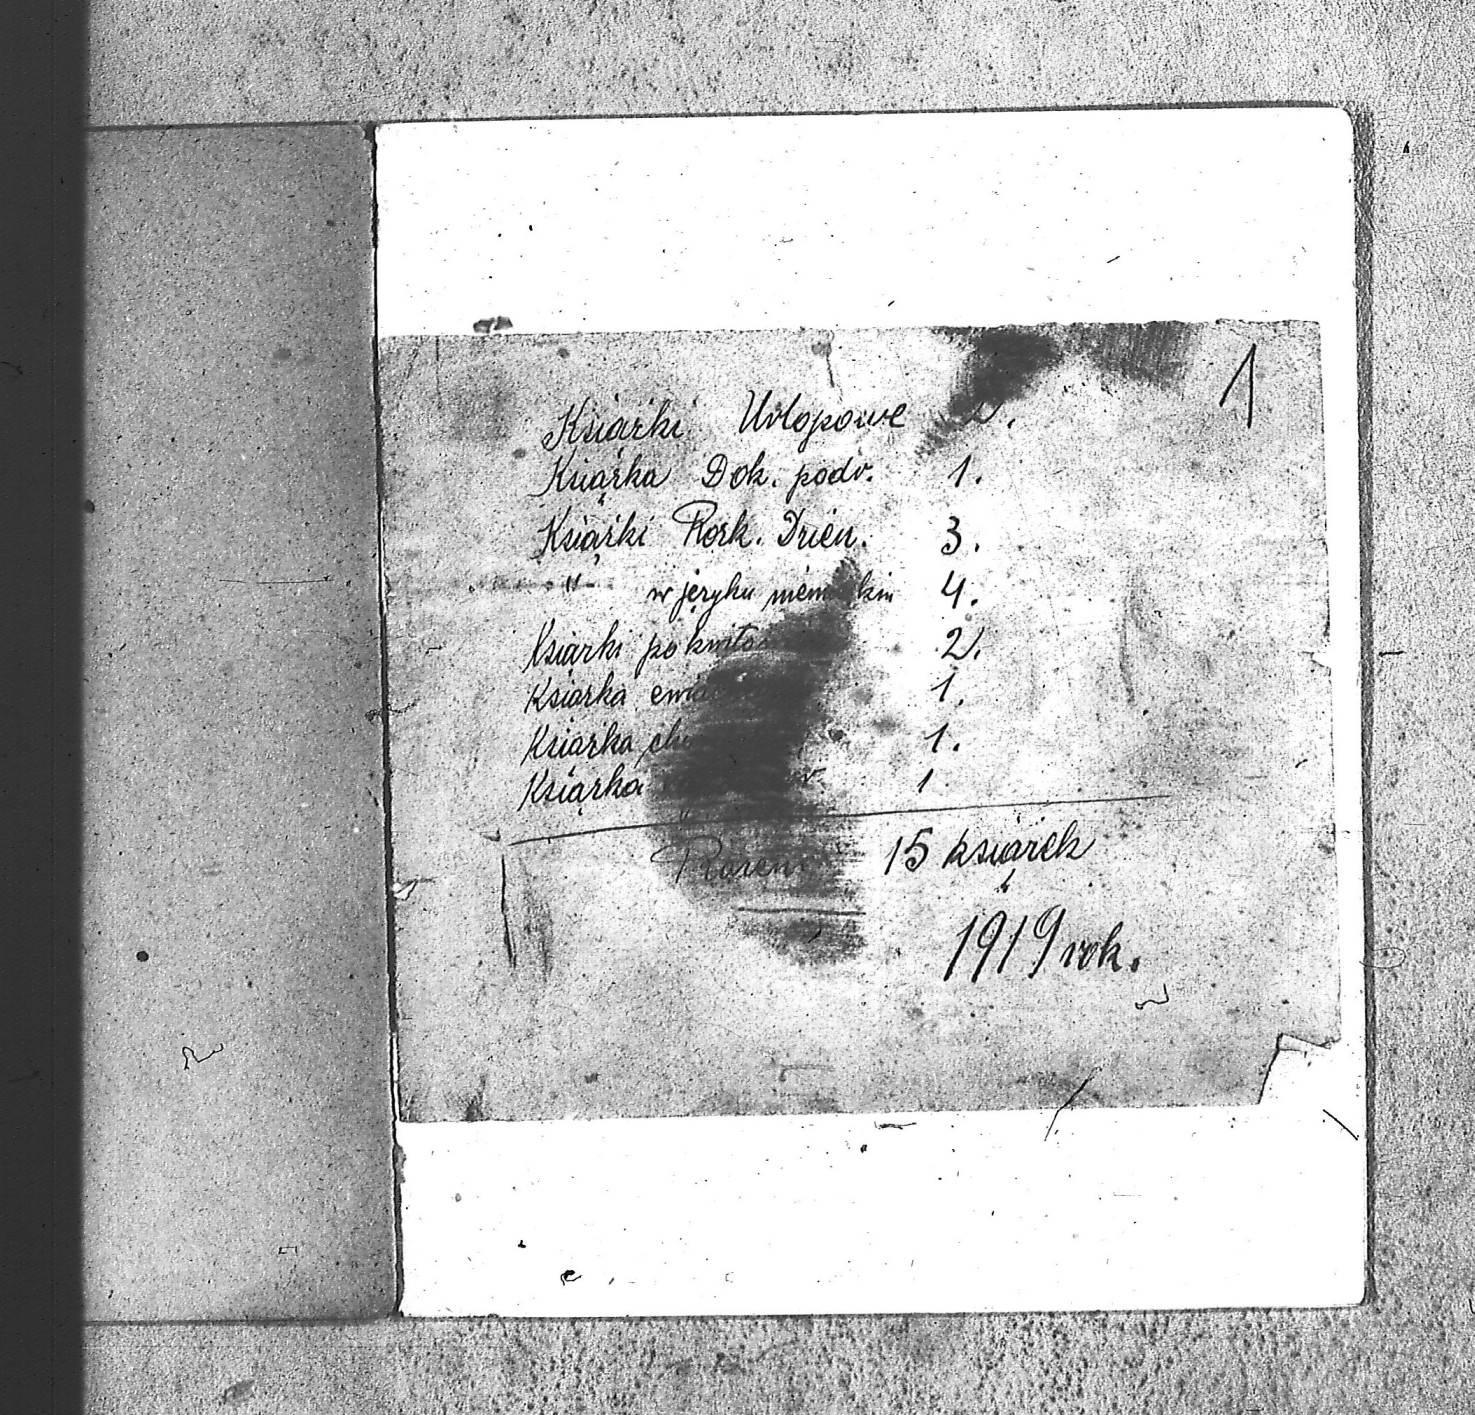 1
Książki Urlopowe 2.
Książka Dok. podr. 1.
Książki Rozk. Dzien. 3.
" w języku niem kim 4.
Książki pokwito 2.
Książka ewi 1.
Książka 1.
Książka 1.
Razem 15 książek
1919 rok.